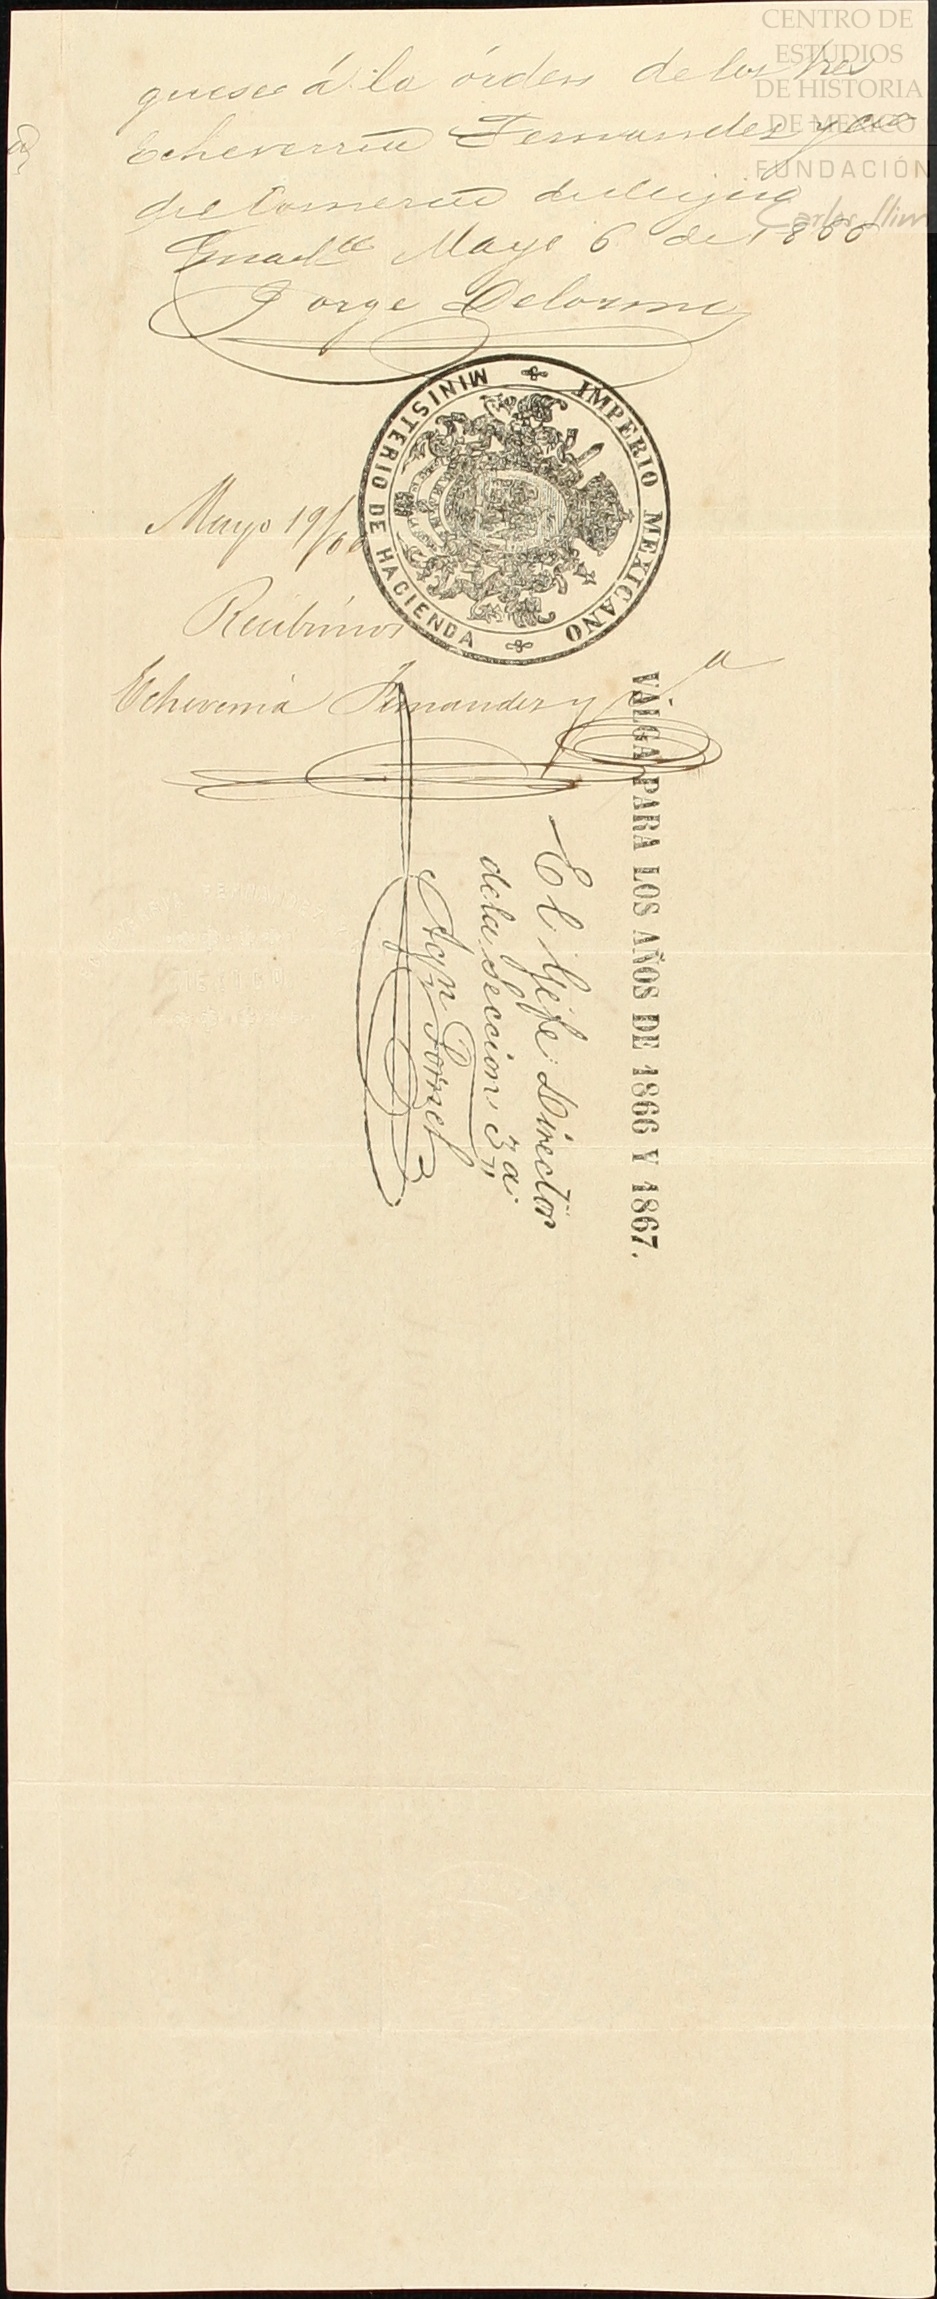 CENTRO DE
ESTUDIOS
DE HISTORIA
DE MÉXICO
FUNDACIÓN
Carlos Slim
á la órden de los Sres
Echeverria Fernandez y Cia
del Comercio de
Mayo 6 de 1866
Jorge Delorme
IMPERIO MEXICANO
MINISTERIO DE HACIENDA
Mayo 19/66
Recibimos
Echeverria Fernandez y Ca
VALGA PARA LOS AÑOS DE 1866 Y 1867.
El Gefe Director
de la Seccion 3a
Agn Tornel